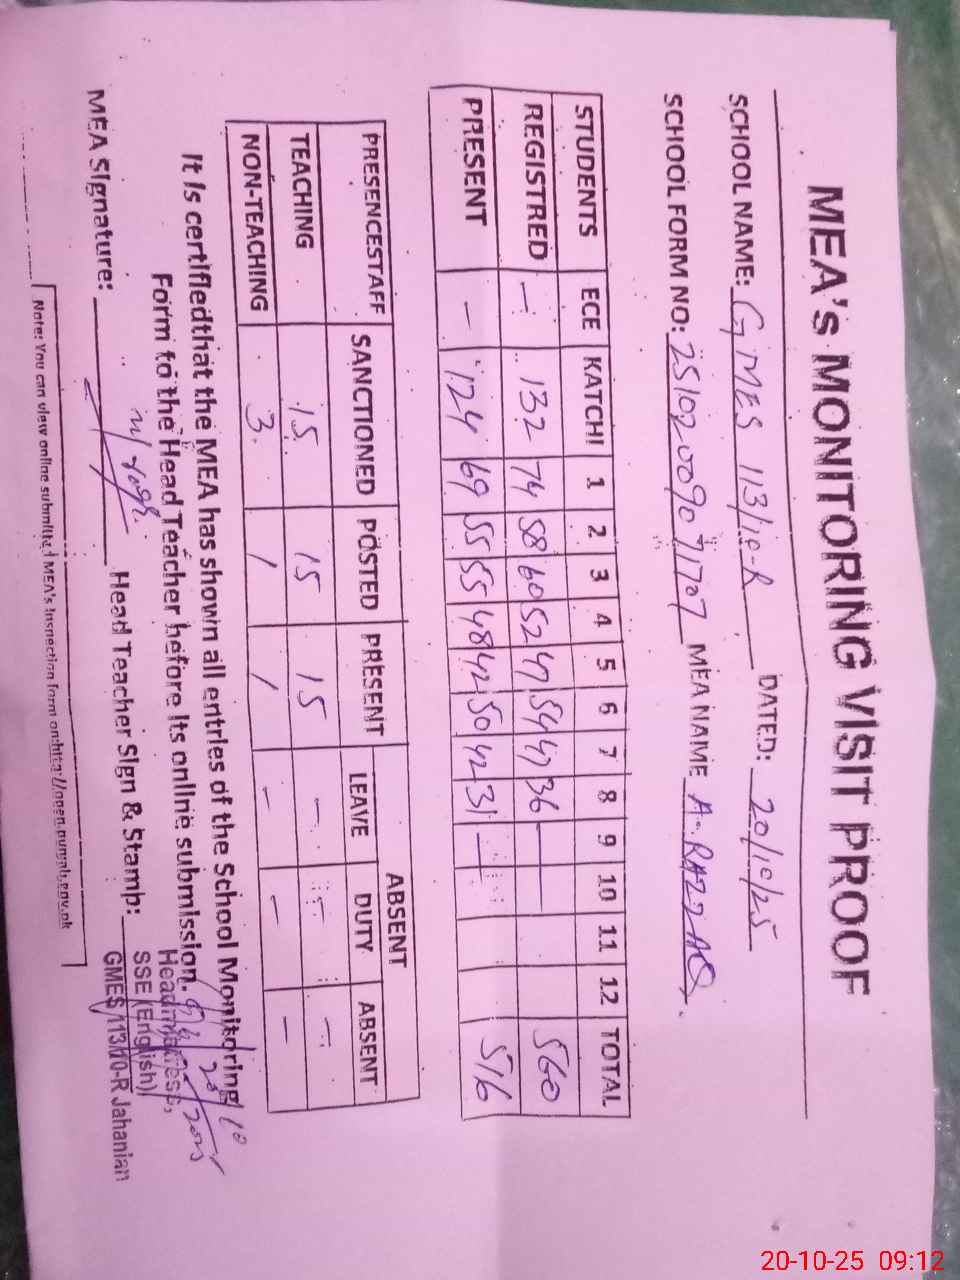 MEA's MONITORING VISIT PROOF
SCHOOL NAME: GMES 113/10-R DATED: 20/10/25
SCHOOL FORM NO: 25102009071707 MEA NAME A. RAZZAQ.
STUDENTS ECE KATCHI 1 2 3 4 5 6 7 8 9 10 11 12 TOTAL
REGISTRED — 132 74 58 60 52 47 54 47 36 — 560
PRESENT — 124 69 55 55 48 42 50 42 31 — 516
ABSENT
PRESENCESTAFF SANCTIONED POSTED PRESENT LEAVE DUTY ABSENT
TEACHING 15 15 15 - - -
NON-TEACHING 3 1 1 - - -
It is certifiedthat the MEA has shown all entries of the School Monitoring
Form to the Head Teacher before its online submission.
20/10/2025
MEA Signature: Head Teacher Sign & Stamp:
Headmistress,
SSE (English)
GMES 113/10-R Jahanian
Note: You can view online submitted MEA's Inspection form on:http://open.punjab.gov.pk
20-10-25 09:12